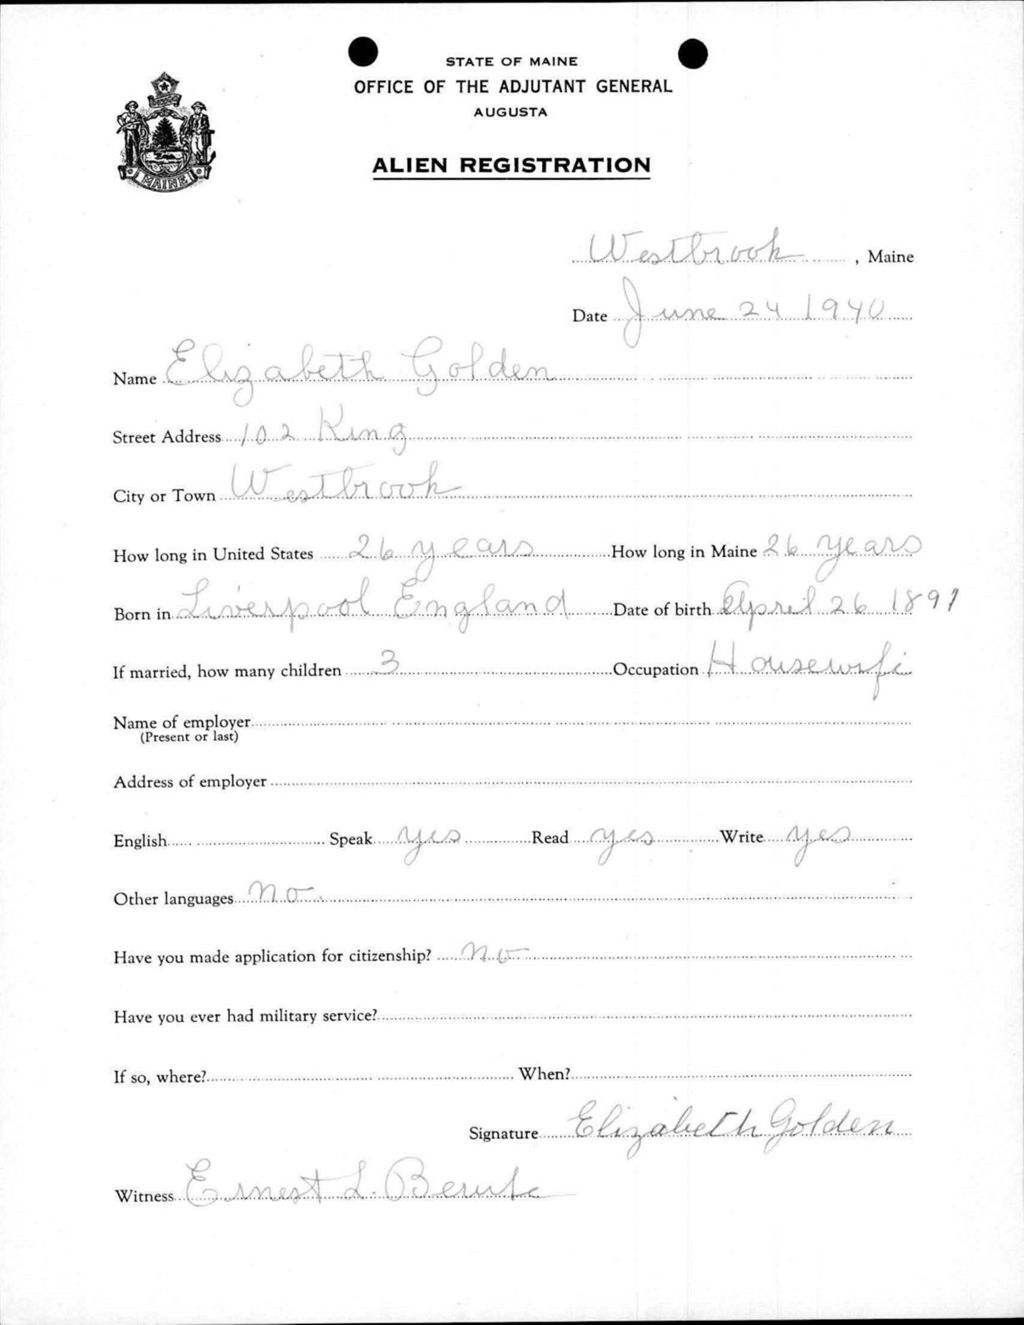 STATE OF MAINE
OFFICE OF THE ADJUTANT GENERAL
AUGUSTA
MAINE
ALIEN REGISTRATION
Westbrook, Maine
Date June 24 1940
Name Elizabeth Golden
Street Address 102 King
City or Town Westbrook
How long in United States 26 years How long in Maine 26 years
Born in Liverpool England Date of birth April 26 1891
If married, how many children 3 Occupation Housewife
Name of employer
(Present or last)
Address of employer
English Speak yes Read yes Write yes
Other languages no
Have you made application for citizenship? no
Have you ever had military service?
If so, where? When?
Signature Elizabeth Golden
Witness Ernest L.